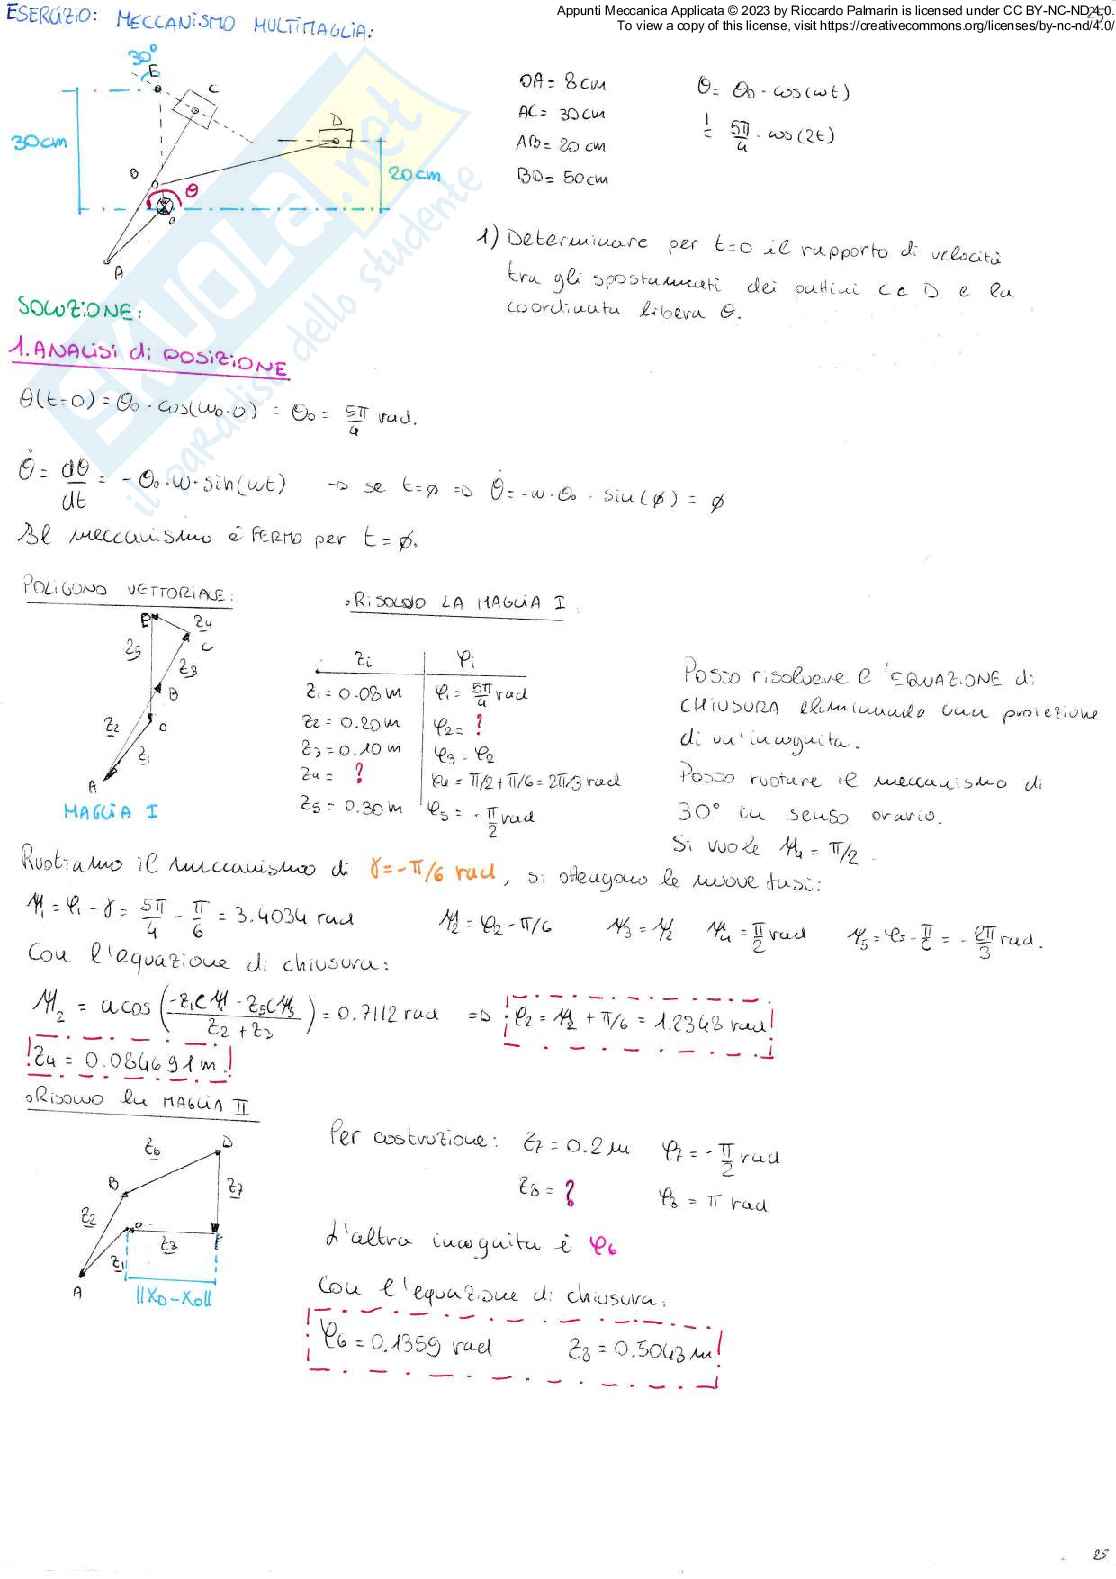 Appunti Meccanica Applicata © 2023 by Riccardo Palmarin is licensed under CC BY-NC-ND 4.0.
To view a copy of this license, visit https://creativecommons.org/licenses/by-nc-nd/4.0/
ESERCIZIO: MECCANISMO MULTIMAGLIA:
30°
E
C
D
30cm
B
θ
O
20cm
A
OA = 8cm
AC = 30cm
AB = 20cm
BD = 50cm
θ = θ0 · cos(ωt)
= 5π/4 · cos(2t)
1) Determinare per t=0 il rapporto di velocità
tra gli spostamenti dei pattini C e D e la
coordinata libera θ.
SOLUZIONE:
1. ANALISI di POSIZIONE
θ(t=0) = θ0 · cos(ω0·0) = θ0 = 5π/4 rad.
θ̇ = dθ/dt = -θ0·ω·sin(ωt) → se t=∅ ⇒ θ̇ = -ω·θ0·sin(∅) = ∅
Il meccanismo è FERMO per t=∅.
POLIGONO VETTORIALE:
E z4
z5 C
z3
B
z2 O
z1
A
MAGLIA I
.RISOLVO LA MAGLIA I
zi φi
z1 = 0.08m φ1 = 5π/4 rad
z2 = 0.20m φ2 = ?
z3 = 0.10m φ3 = φ2
z4 = ? φ4 = π/2 + π/6 = 2π/3 rad
z5 = 0.30m φ5 = -π/2 rad
Posso risolvere l'EQUAZIONE di
CHIUSURA eliminando con proiezione
di un'incognita.
Posso ruotare il meccanismo di
30° in senso orario.
Si vuole ψ4 = π/2.
Ruotiamo il meccanismo di γ = -π/6 rad, si ottengono le nuove fasi:
ψ1 = φ1 - γ = 5π/4 - π/6 = 3.4034 rad ψ2 = φ2 - π/6 ψ3 = ψ2 ψ4 = π/2 rad ψ5 = φ5 - π/6 = -2π/3 rad.
Con l'equazione di chiusura:
ψ2 = acos((-z1cψ1 - z5cψ5)/(z2 + z3)) = 0.7112 rad ⇒ φ2 = ψ2 + π/6 = 1.2348 rad
z4 = 0.084691 m
.Risolvo la MAGLIA II
z6 D
B
z2 z7
O
z1 z8 F
A
||XD - XO||
Per costruzione: z7 = 0.2m φ7 = -π/2 rad
z8 = ? φ8 = π rad
L'altra incognita è φ6
Con l'equazione di chiusura:
φ6 = 0.1359 rad z8 = 0.5043 m
25
SKUOLA.net
il paradiso dello studente